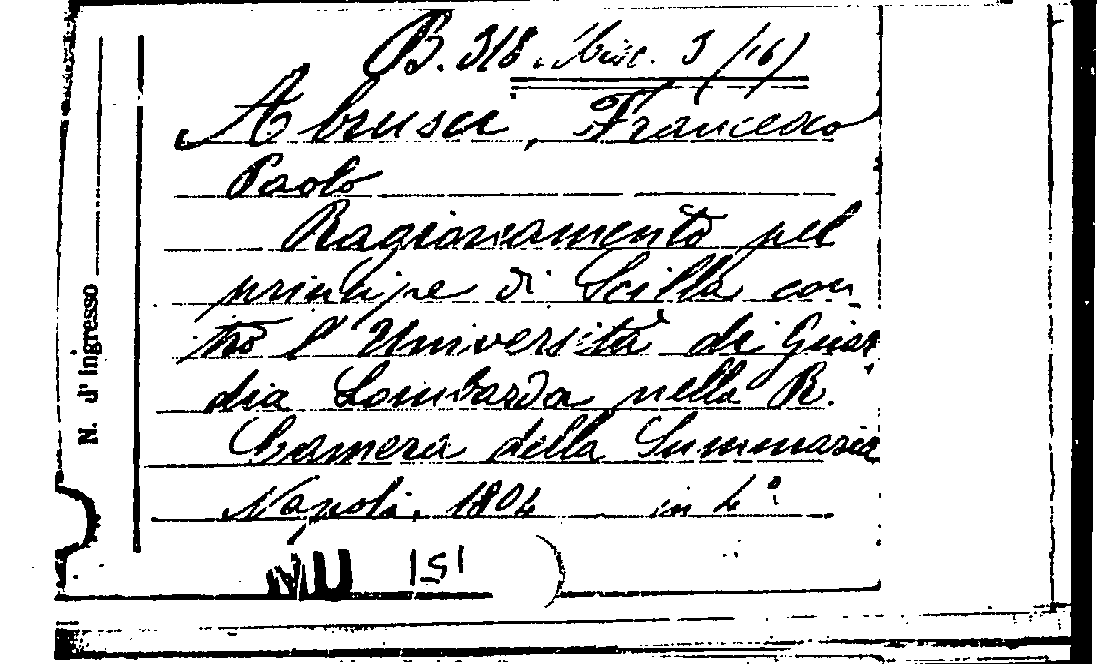 B. 318. Misc. 3 (16)
Abrusci, Francesco
Paolo
Ragionamento pel
principe di Scilla con-
tro l'Università di Guar-
dia Lombarda nella R.
Camera della Summaria
Napoli, 1804 in 4°
N. d'Ingresso